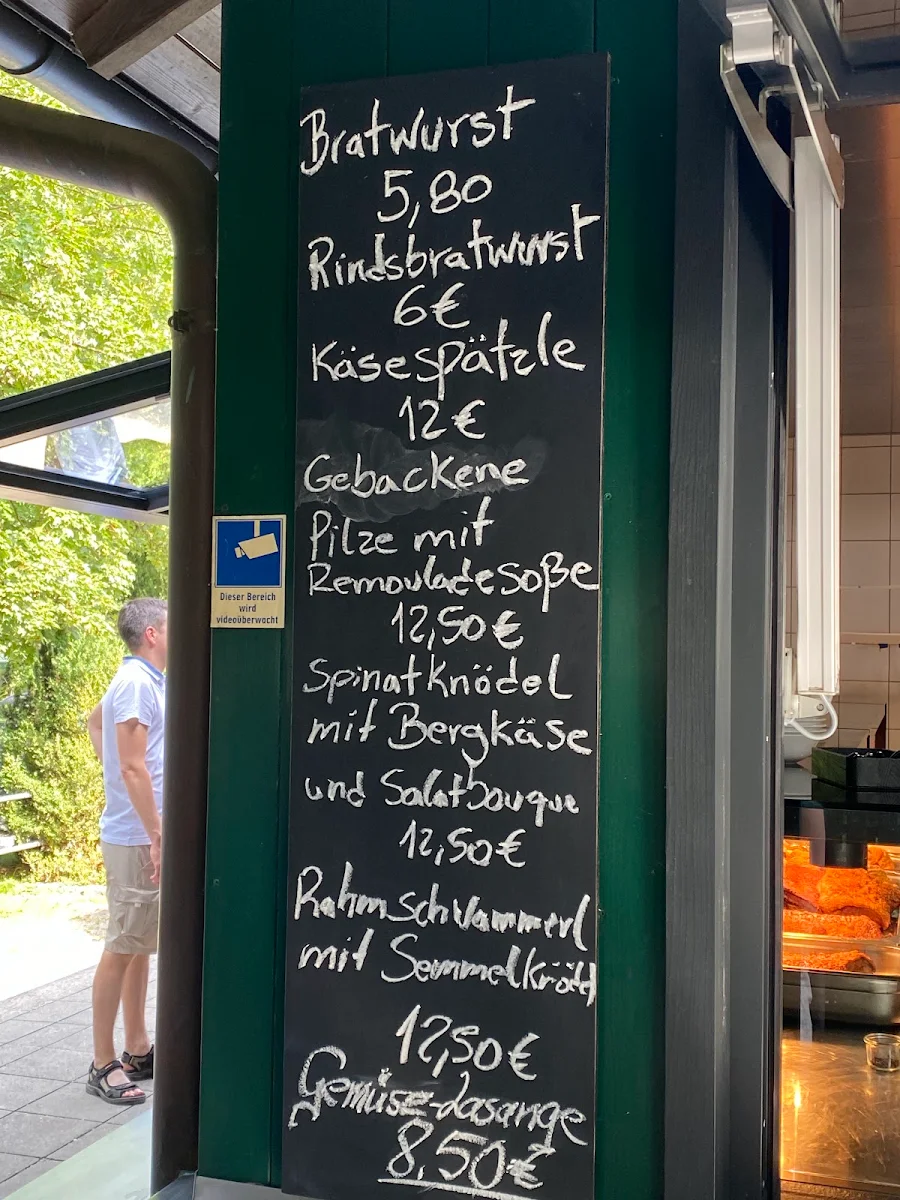 Bratwurst
5,80
Rindsbratwurst
6€
Käsespätzle
12€
Gebackene
Pilze mit
Remouladesoße
12,50€
Spinatknödel
mit Bergkäse
und Salatbouque
12,50€
Rahmschwammerl
mit Semmelknödel
12,50€
Gemüse-lasange
8,50€
Dieser Bereich
wird
videoüberwacht